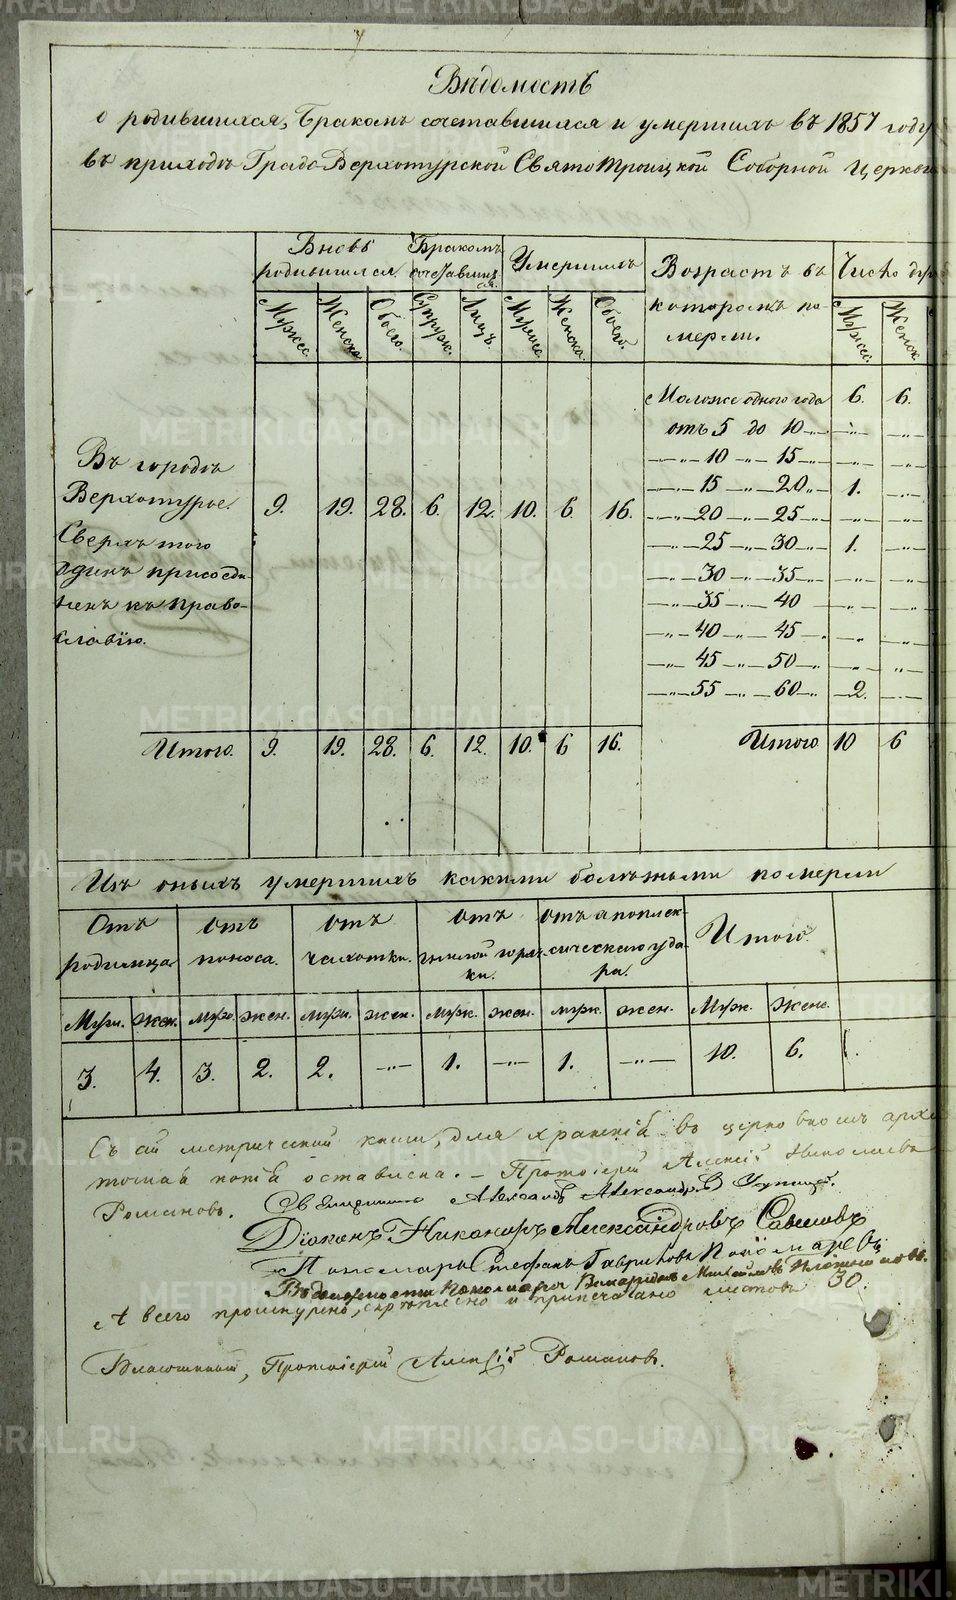 Вѣдомость
о родившихся, бракомъ сочетавшихся и умершихъ въ 1857 году
въ приходѣ Градо-Верхотурской Свято Троицкой Соборной Церкви
Вновь родившихся.
Бракомъ сочетавших ся.
Умершихъ
Возрастъ въ которомъ по мерли.
Число
Мужес. Женска. Обоего. Супруж. Лицъ. Мужес. Женска. Обоего. Мужес. Женск.
Въ городѣ
Верхотурье.
Сверхъ того
одинъ присоеди
ненъ къ право-
славію.
9. 19. 28. 6. 12. 10. 6. 16.
Моложе одного года 6. 6.
отъ 5 до 10 —„— —„—
—„— 10 —„— 15 —„— —„—
—„— 15 —„— 20 1. —„—
—„— 20 —„— 25 —„— —„—
—„— 25 —„— 30 1. —„—
—„— 30 —„— 35 —„— —„—
—„— 35 —„— 40 —„— —„—
—„— 40 —„— 45 —„— —„—
—„— 45 —„— 50 —„— „
—„— 55 —„— 60 2. —„—
Итого. 9. 19. 28. 6. 12. 10. 6 16.
Итого 10 6
Изъ оныхъ умершихъ какими болѣзньми померли
Отъ родимца
отъ поноса.
отъ чахотки.
отъ горяч ки.
отъ апоплек- сическаго уда ра.
Итого.
Мужс. Жен. муж. жен. мужс. жен. муж. жен. муж. жен. Муж. Жен.
3. 4. 3. 2. 2. —„— 1. —„— 1. —„— 10. 6.
Съ сей метрической книги, для храненія въ церковномъ
копія оставлена. – Протоіерей Алексій Николаевъ
Романовъ. Священникъ Александръ Александровъ
Діаконъ Никаноръ Александровъ
Пономарь Стефанъ Гавриловъ Пономаревъ
Въ должности Пономаря Михайловъ
А всего прошнурено, скрѣплено и припечатано листовъ 30.
Благочинный, Протоіерей Алексій Романовъ.
METRIKI.GASO-URAL.RU